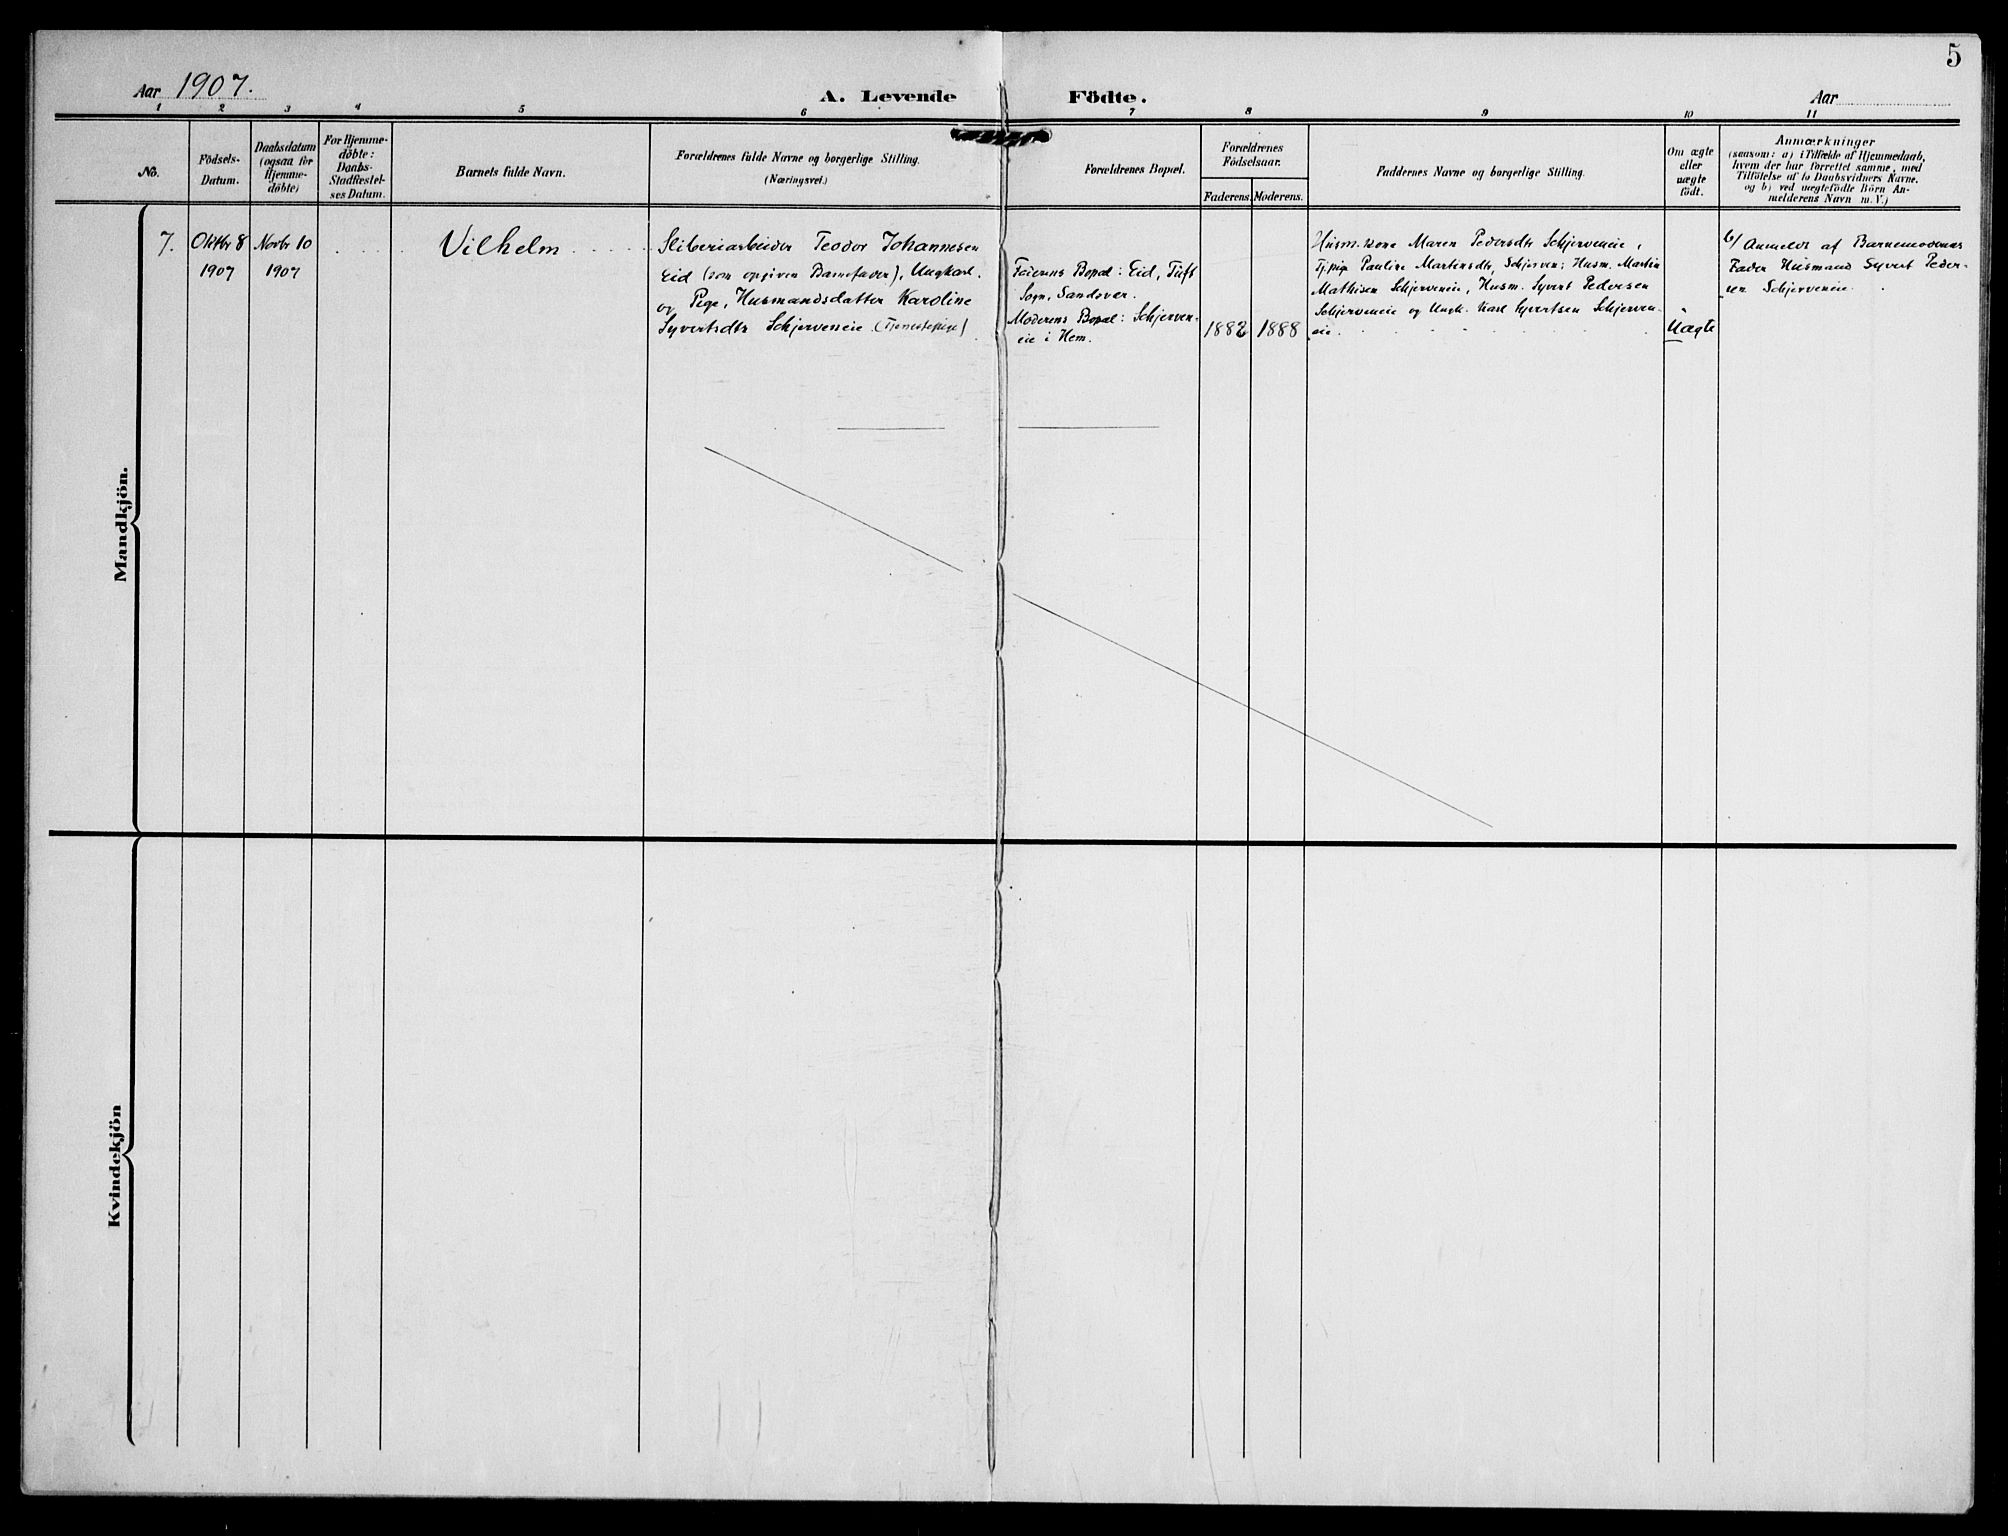 5
Aar 1907.
A. Levende Födte.
Aar
1 2 3 4 5 6 7 8 9 10 11
No.
Födsels-
Datum.
Daabsdatum
(ogsaa for
Hjemme-
döbte)
For Hjemme-
döbte:
Daabs-
Stadfæstel-
ses Datum.
Barnets fulde Navn.
Forældrenes fulde Navne og borgerlige Stilling.
(Næringsvei.)
Forældrenes Bopæl.
Forældrenes
Födselsaar.
Faderens. Moderens.
Faddernes Navne og borgerlige Stilling.
Om ægte
eller
uægte
födt.
Anmærkninger
(saasom: a) i Tilfælde af Hjemmedaab,
hvem der har forrettet samme, med
Tilföielse af to Daabsvidners Navne.
og b) ved uægtefödte Börn An-
melderens Navn m. V.)
Mandkjön.
7.
Oktbr 8
1907
Novbr 10
1907
Vilhelm
Sliberiarbeider Teodor Johannesen
Eid (som opgiven Barnefader), Ungkarl.
og Pige, Husmandsdatter Karoline
Syvertsdtr Schjerveneie (Tjenestepige).
Faderens Bopæl: Eid, Tuft
Sogn, Sandsver.
Moderens Bopæl: Schjerven-
eie i Hem.
1882
1888
Husm. kone Maren Pedersdtr Schjerveneie,
Tj. pige Pauline Martinsdtr, Schjerven; Husm. Martin
Mathisen Schjerveneie, Husm. Syvert Pedersen
Schjerveneie og Ungk. Karl Syvertsen Schjerven-
eie.
Uægte
b/ Anmeldt af Barnemoderens
Fader Husmand Syvert Peder-
sen Schjerveneie.
Kvindekjön